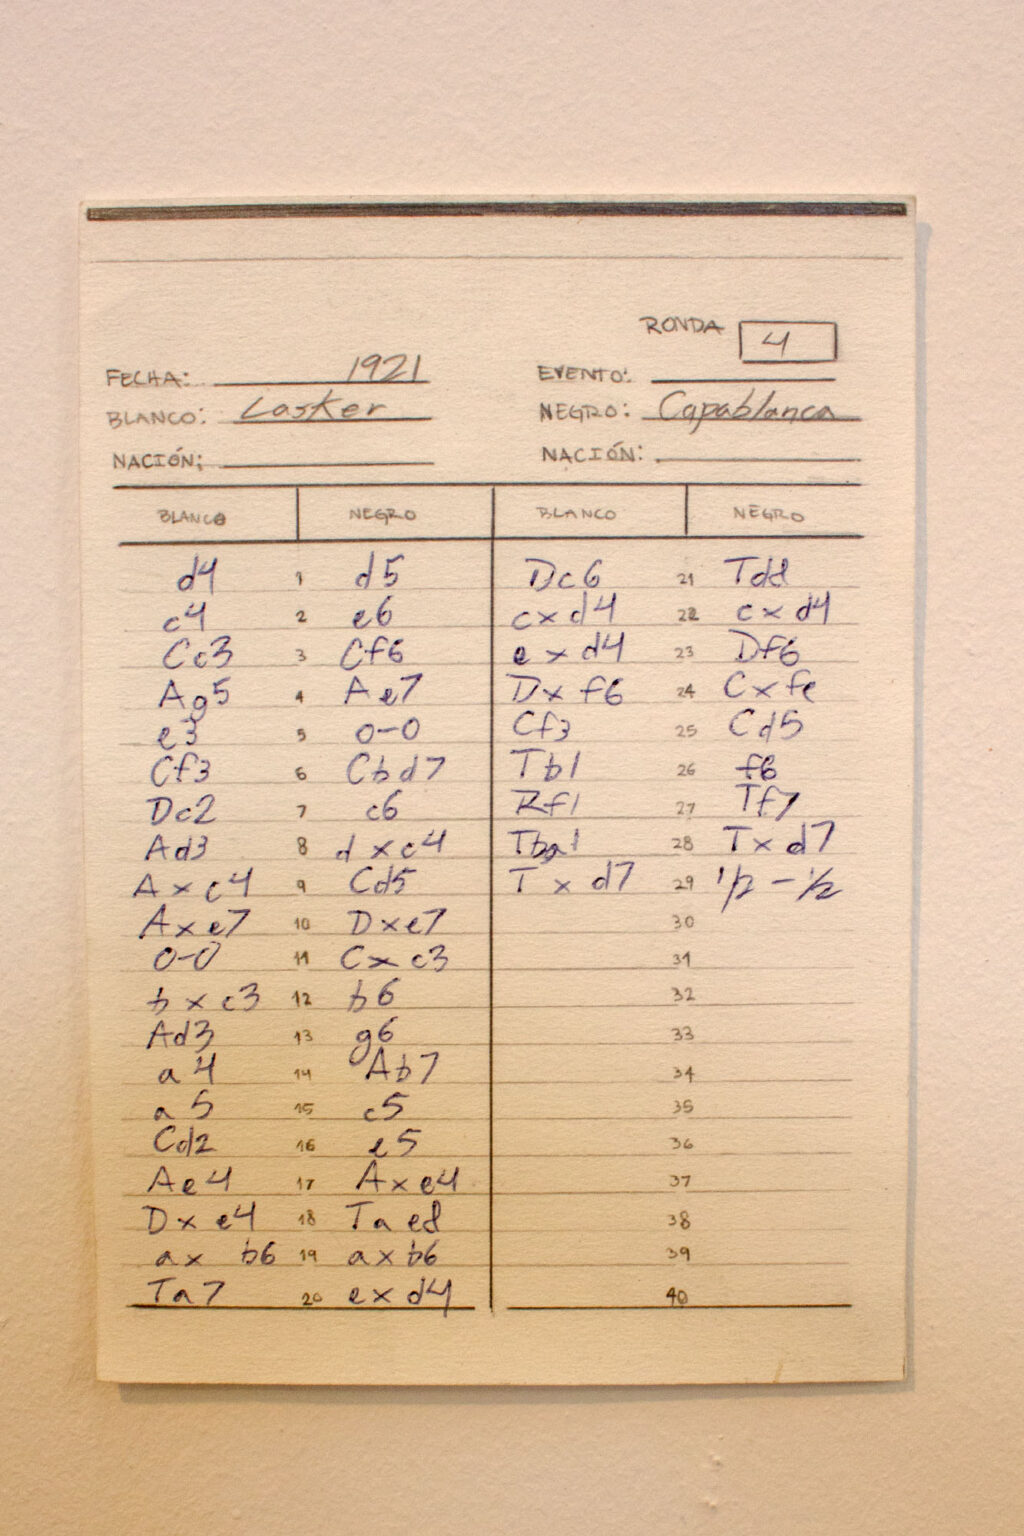 RONDA 4
FECHA: 1921 EVENTO:
BLANCO: Lasker NEGRO: Capablanca
NACIÓN: NACIÓN:
BLANCO NEGRO BLANCO NEGRO
d4 1 d5 Dc6 21 Td8
c4 2 e6 cxd4 22 cxd4
Cc3 3 Cf6 exd4 23 Df6
Ag5 4 Ae7 Dxf6 24 Cxfe
e3 5 0-0 Cf3 25 Cd5
Cf3 6 Cbd7 Tb1 26 f6
Dc2 7 c6 Rf1 27 Tf7
Ad3 8 dxc4 Tba1 28 Txd7
Axc4 9 Cd5 Txd7 29 1/2-1/2
Axe7 10 Dxe7 30
0-0 11 Cxc3 31
bxc3 12 b6 32
Ad3 13 g6 33
a4 14 Ab7 34
a5 15 c5 35
Cd2 16 e5 36
Ae4 17 Axe4 37
Dxe4 18 Tae8 38
axb6 19 axb6 39
Ta7 20 exd4 40